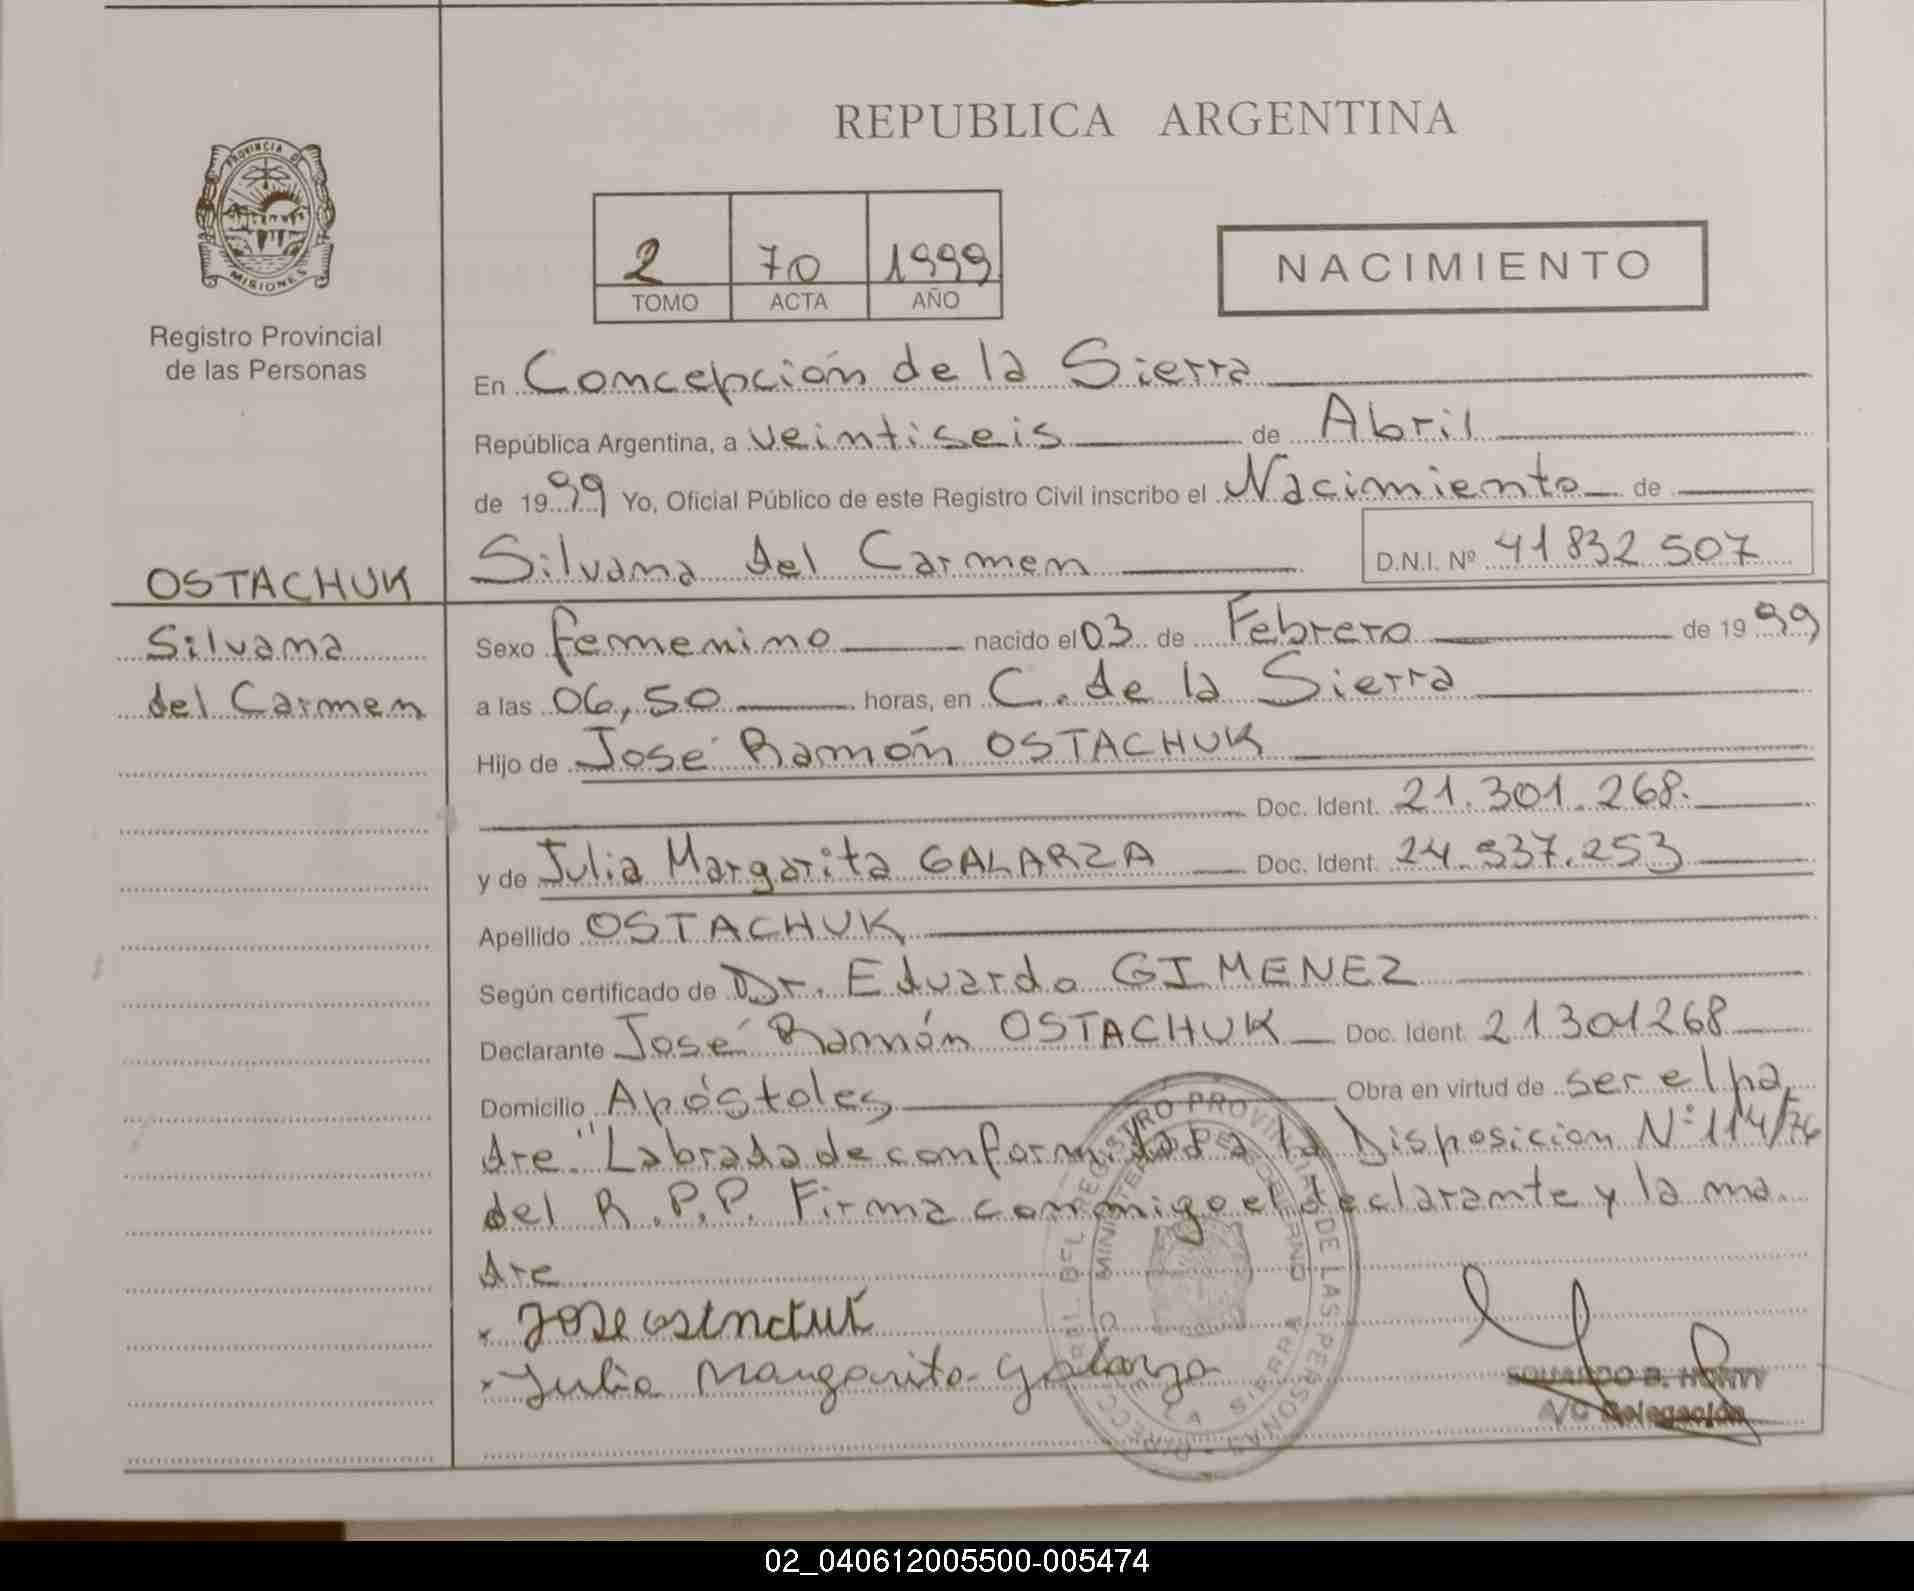 REPUBLICA ARGENTINA
PROVINCIA DE
MISIONES
Registro Provincial
de las Personas
2 70 1999
TOMO ACTA AÑO
NACIMIENTO
En Concepción de la Sierra
República Argentina, a veintiseis de Abril
de 1999 Yo, Oficial Público de este Registro Civil inscribo el Nacimiento de
Silvana del Carmen D.N.I. Nº 41832507
OSTACHUK
Silvana
del Carmen
Sexo femenino nacido el 03 de Febrero de 1999
a las 06,50 horas, en C. de la Sierra
Hijo de José Ramón OSTACHUK
Doc. Ident. 21.301.268.
y de Julia Margarita GALARZA Doc. Ident. 24.537.253
Apellido OSTACHUK
Según certificado de Dr. Eduardo GIMENEZ
Declarante José Ramón OSTACHUK Doc. Ident. 21301268
Domicilio Apóstoles Obra en virtud de ser el pa
dre." Labrada de conformidad a la Disposicion Nº 114/76
del R.P.P. Firma conmigo el declarante y la ma
dre
x Jose
x Julia Margarita Galarza
REGISTRO PROVINCIAL DE LAS PERSONAS
MINISTERIO DE GOBIERNO
LA SIERRA
EDUARDO B.
A/C Delegación
02_040612005500-005474